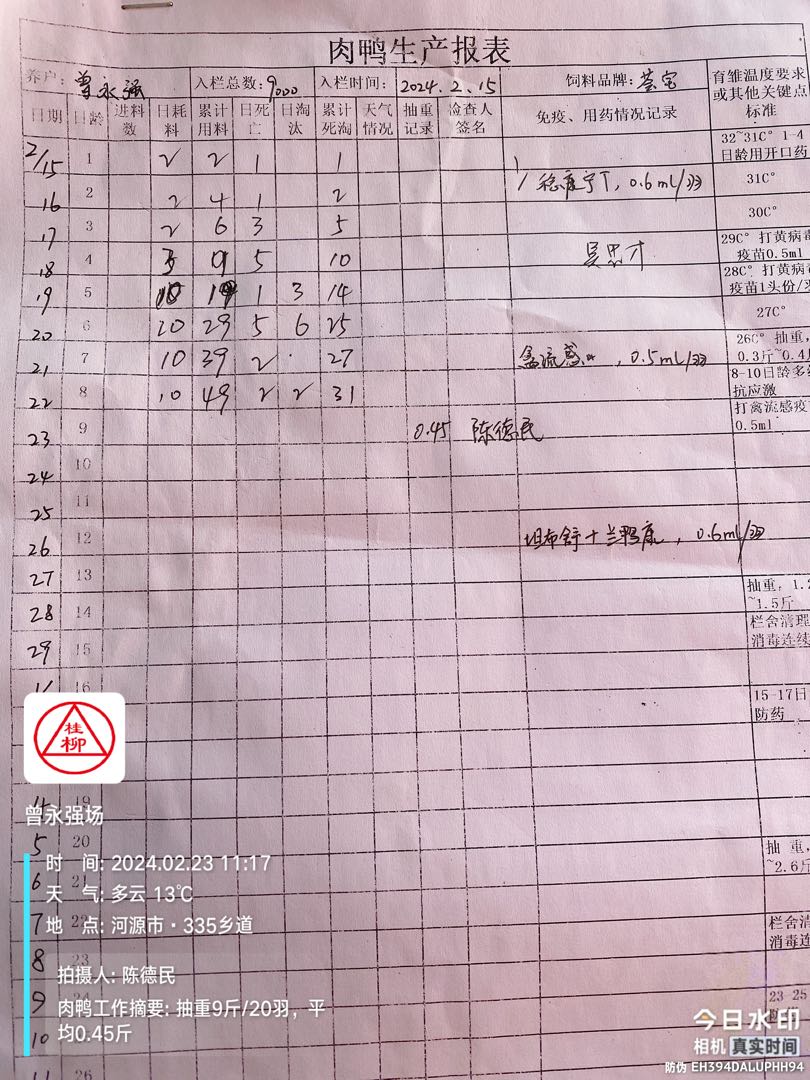 肉鸭生产报表
养户: 曾永强 入栏总数: 9000 入栏时间: 2024.2.15 饲料品牌: 荟宝 育雏温度要求或其他关键点标准
日期 日龄 进料数 日耗料 累计用料 日死亡 日淘汰 累计死淘 天气情况 抽重记录 检查人签名 免疫、用药情况记录
2/15 1 2 2 1 1 32~31C° 1-4日龄用开口药
16 2 2 4 1 2 0.6ml/羽 31C°
17 3 2 6 3 5 30C°
18 4 5 10 29C° 打黄病毒疫苗0.5ml
19 5 10 19 1 3 14 28C° 打黄病毒疫苗1头份/
20 6 10 29 5 6 25 27C°
21 7 10 39 2 27 禽流感 , 0.5ml/羽 26C° 抽重, 0.3斤~0.4
22 8 10 49 2 2 31 8-10日龄多维抗应激
23 9 0.45 陈德民 打禽流感疫 0.5ml
24 10
25 11
26 12 坦布舒+兰鸭康, 0.6ml/羽
27 13
28 14 抽重, 1.2~1.5斤
29 15 栏舍清理消毒连续
16 15-17日防药
4 19
5 20 抽重, ~2.6斤
6 21
7 22 栏舍清消毒连
8 23
9 23-25
10
11 26
桂柳
曾永强场
时 间: 2024.02.23 11:17
天 气: 多云 13℃
地 点: 河源市·335乡道
拍摄人: 陈德民
肉鸭工作摘要: 抽重9斤/20羽，平
均0.45斤
今日水印
相机 真实时间
防伪 EH394DALUPHH94